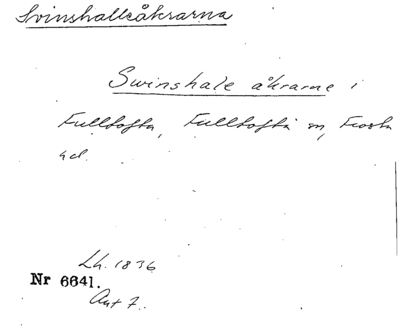 Svinshallsåkrarna
Swinshale åkrarne i
Fulltofta, Fulltofta sn, Frosta
hd.
Lh. 1836
Nr 6641.
Akt 7.